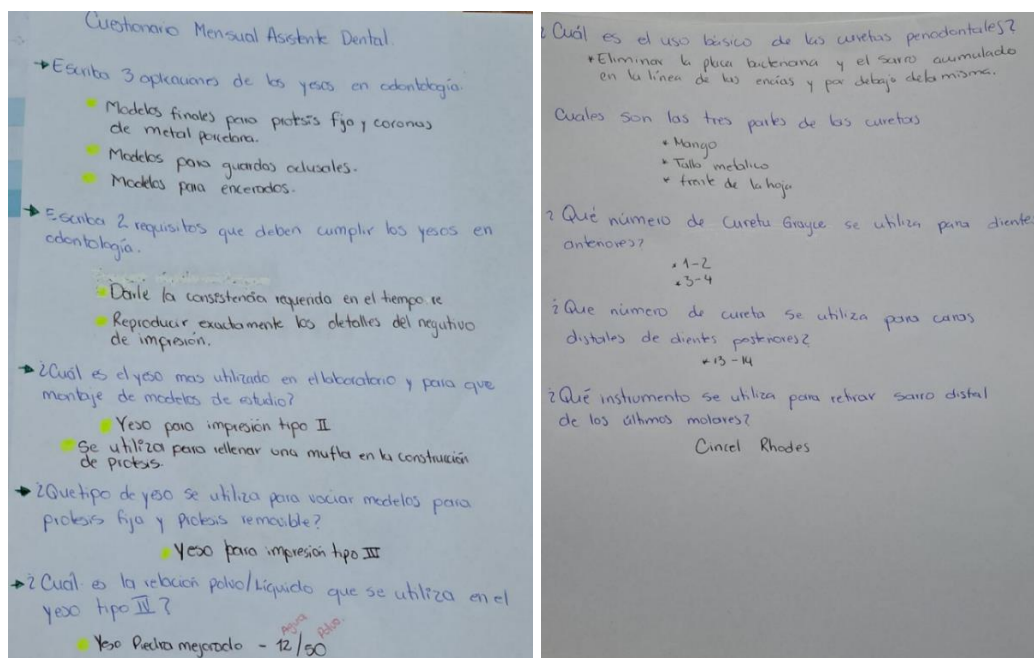 Cuestionario Mensual Asistente Dental.
Escriba 3 aplicaciones de los yesos en odontología.
Modelos finales para protsis fija y coronas
de metal porcelana.
Modelos para guardas oclusales.
Modelos para encerados.
Escriba 2 requisitos que deben cumplir los yesos en
odontología.
Darle la consistencia requerida en el tiempo re
Reproducir exactamente los detalles del negativo
de impresión.
¿Cuál es el yeso mas utilizado en el laboratorio y para que
montaje de modelos de estudio?
Yeso para impresión tipo II
Se utiliza para rellenar una mufla en la construcción
de protesis.
¿Que tipo de yeso se utiliza para vaciar modelos para
protesis fija y protesis removible?
Yeso para impresión tipo III
¿Cual es la relación polvo/Liquido que se utiliza en el
yeso tipo IV?
Agua Polvo
Yeso Piedra mejorado - 12/50
¿Cuál es el uso básico de las curetas periodontales?
*Eliminar la placa bacteriana y el sarro acumulado
en la línea de las encías y por debajo de la misma.
Cuales son las tres partes de las curetas
* Mango
* Tallo metalico
* frente de la hoja
? Qué número de Cureta Grayce se utiliza para diente
anteriores?
* 1-2
* 3-4
¿Que número de cureta se utiliza para caras
distales de dientes posteriores?
* 13-14
¿Qué instrumento se utiliza para retirar sarro distal
de los últimos molares?
Cincel Rhodes